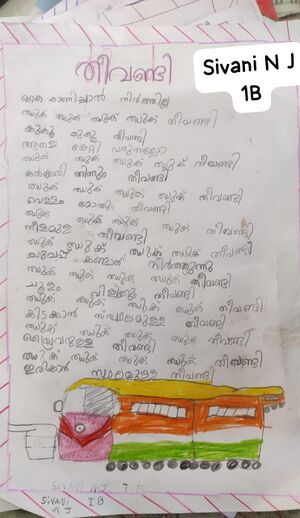 Sivani N J
1B
തീവണ്ടി
കൈ കാണിച്ചാൽ നിർത്തില്ല
ഝുക് ഝുക് ഝുക് ഝുക് തീവണ്ടി
കൂകൂ കൂകൂ തീവണ്ടി
ആവി കേറ്റി വരുന്നല്ലോ
ഝുക് ഝുക് ഝുക് ഝുക് തീവണ്ടി
കൽക്കരി തിന്നും തീവണ്ടി
ഝുക് ഝുക് ഝുക് ഝുക് തീവണ്ടി
വെള്ളം മോന്തും തീവണ്ടി
ഝുക് ഝുക് ഝുക് ഝുക് തീവണ്ടി
നീളമുള്ള തീവണ്ടി
ഝുക് ഝുക് ഝുക് ഝുക് തീവണ്ടി
ചുവപ്പ് കണ്ടാൽ നിർത്തുന്നു
ഝുക് ഝുക് ഝുക് ഝുക് തീവണ്ടി
ചൂളം വിളിക്കും തീവണ്ടി
ഝുക് ഝുക് ഝുക് ഝുക് തീവണ്ടി
കിടക്കാൻ സ്ഥലമുള്ള തീവണ്ടി
ഝുക് ഝുക് ഝുക് ഝുക് തീവണ്ടി
ഡ്രൈവറുള്ള തീവണ്ടി
ഝുക് ഝുക് ഝുക് ഝുക് തീവണ്ടി
ഇരിക്കാൻ സ്ഥലമുള്ള തീവണ്ടി
SIVANI N.J I B
SIVANI I B
N.J